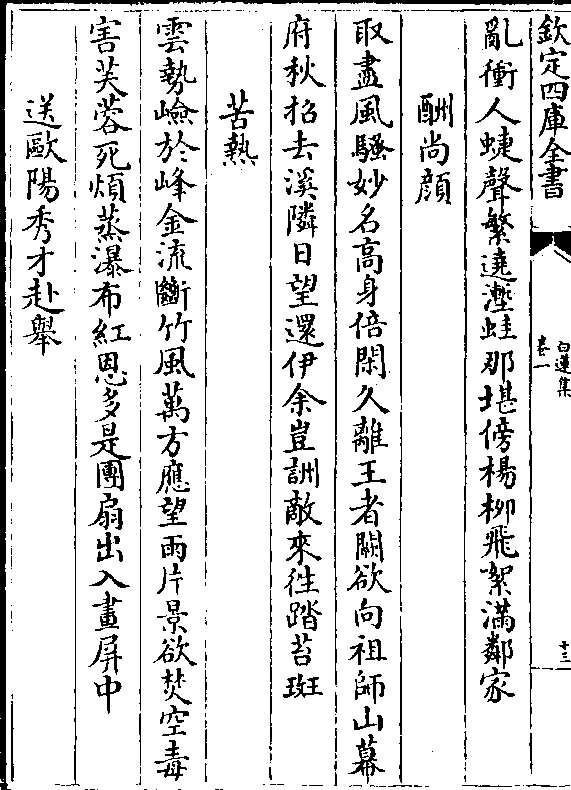 欽定四庫全書
白蓮集
卷一
十三
亂衝人蜨聲繁遶壍蛙那堪傍楊柳飛絮滿鄰家
酬尚顔
取盡風騷妙名高身倍閑久離王者闕欲向祖師山幕
府秋招去溪隣日望還伊余豈詶敵來徃踏苔斑
苦熱
雲勢嶮於峰金流斷竹風萬方應望雨片景欲焚空毒
害芙蓉死煩蒸瀑布紅恩多是團扇出入畫屏中
送歐陽秀才赴舉